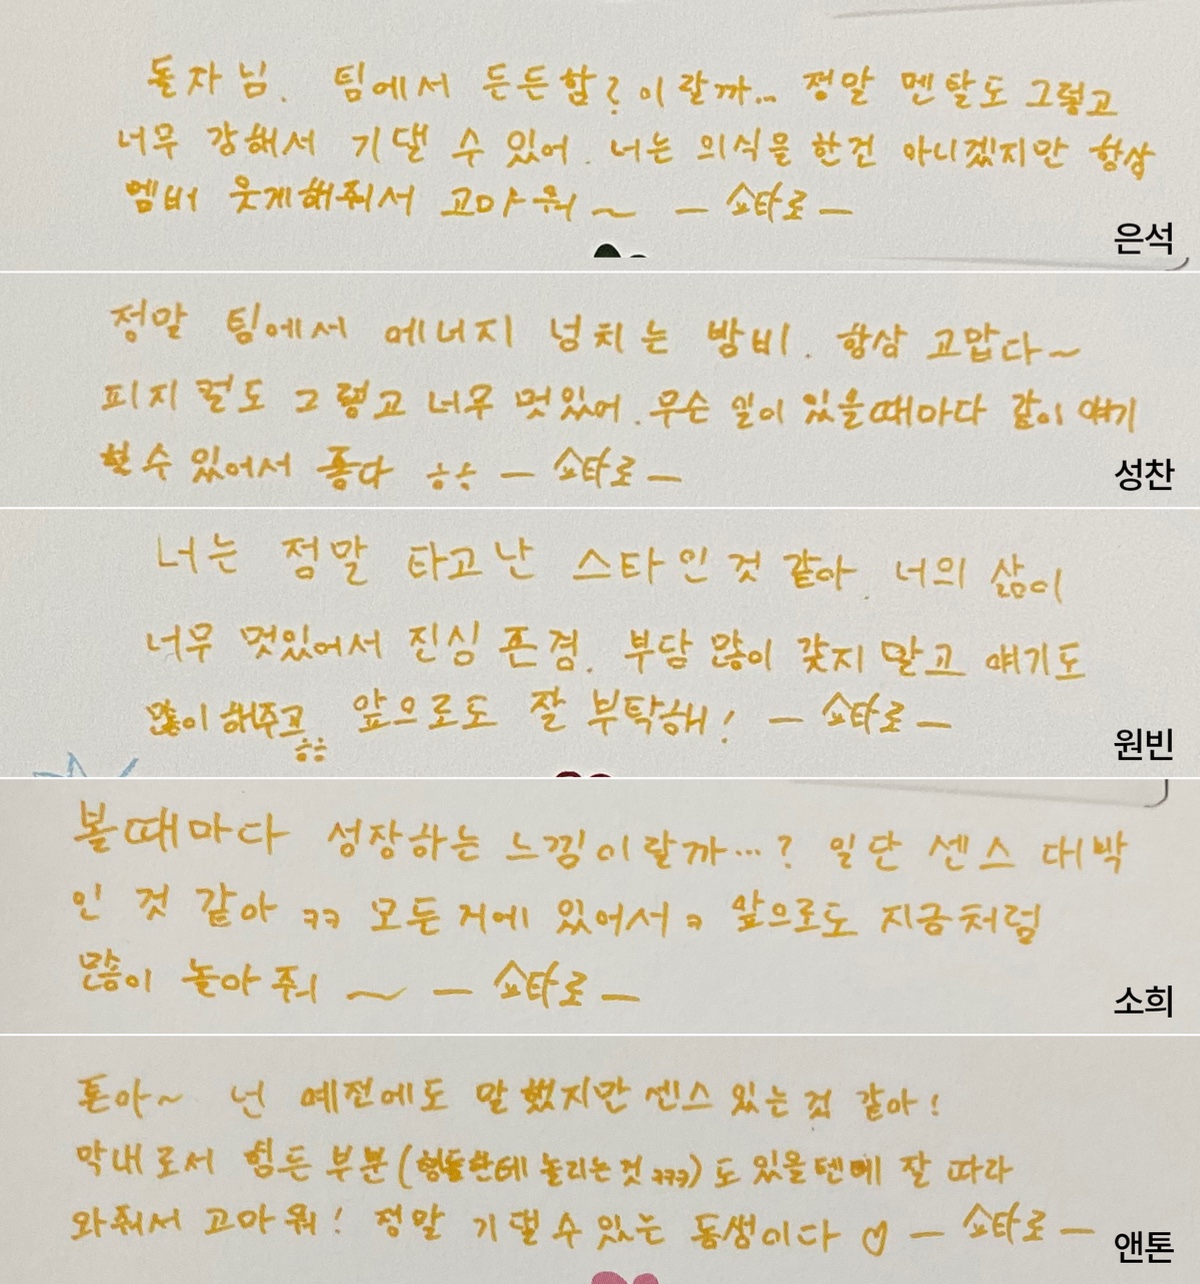 돌자님. 팀에서 든든함? 이랄까... 정말 멘탈도 그렇고
너무 강해서 기댈 수 있어. 너는 의식을 한건 아니겠지만 항상
멤버 웃게해줘서 고마워 ~ - 쇼타로 -
은석
정말 팀에서 에너지 넘치는 밤비. 항상 고맙다~
피지컬도 그렇고 너무 멋있어. 무슨 일이 있을때마다 같이 얘기
할 수 있어서 좋다 ㅎㅎ - 쇼타로 -
성찬
너는 정말 타고난 스타인 것 같아. 너의 삶이
너무 멋있어서 진심 존경. 부담 많이 갖지 말고 얘기도
많이 해주고ㅎㅎ 앞으로도 잘 부탁해! - 쇼타로 -
원빈
볼때마다 성장하는 느낌이랄까...? 일단 센스 대박
인 것 같아 ㅋㅋ 모든 거에 있어서ㅋ 앞으로도 지금처럼
많이 놀아줘 ~ - 쇼타로 -
소희
톤아~ 넌 예전에도 말 했지만 센스 있는 것 같아!
막내로서 힘든 부분(형들한테 놀리는 것 ㅋㅋㅋ)도 있을텐데 잘 따라
와줘서 고마워! 정말 기댈 수 있는 동생이다 ♡ - 쇼타로 -
앤톤